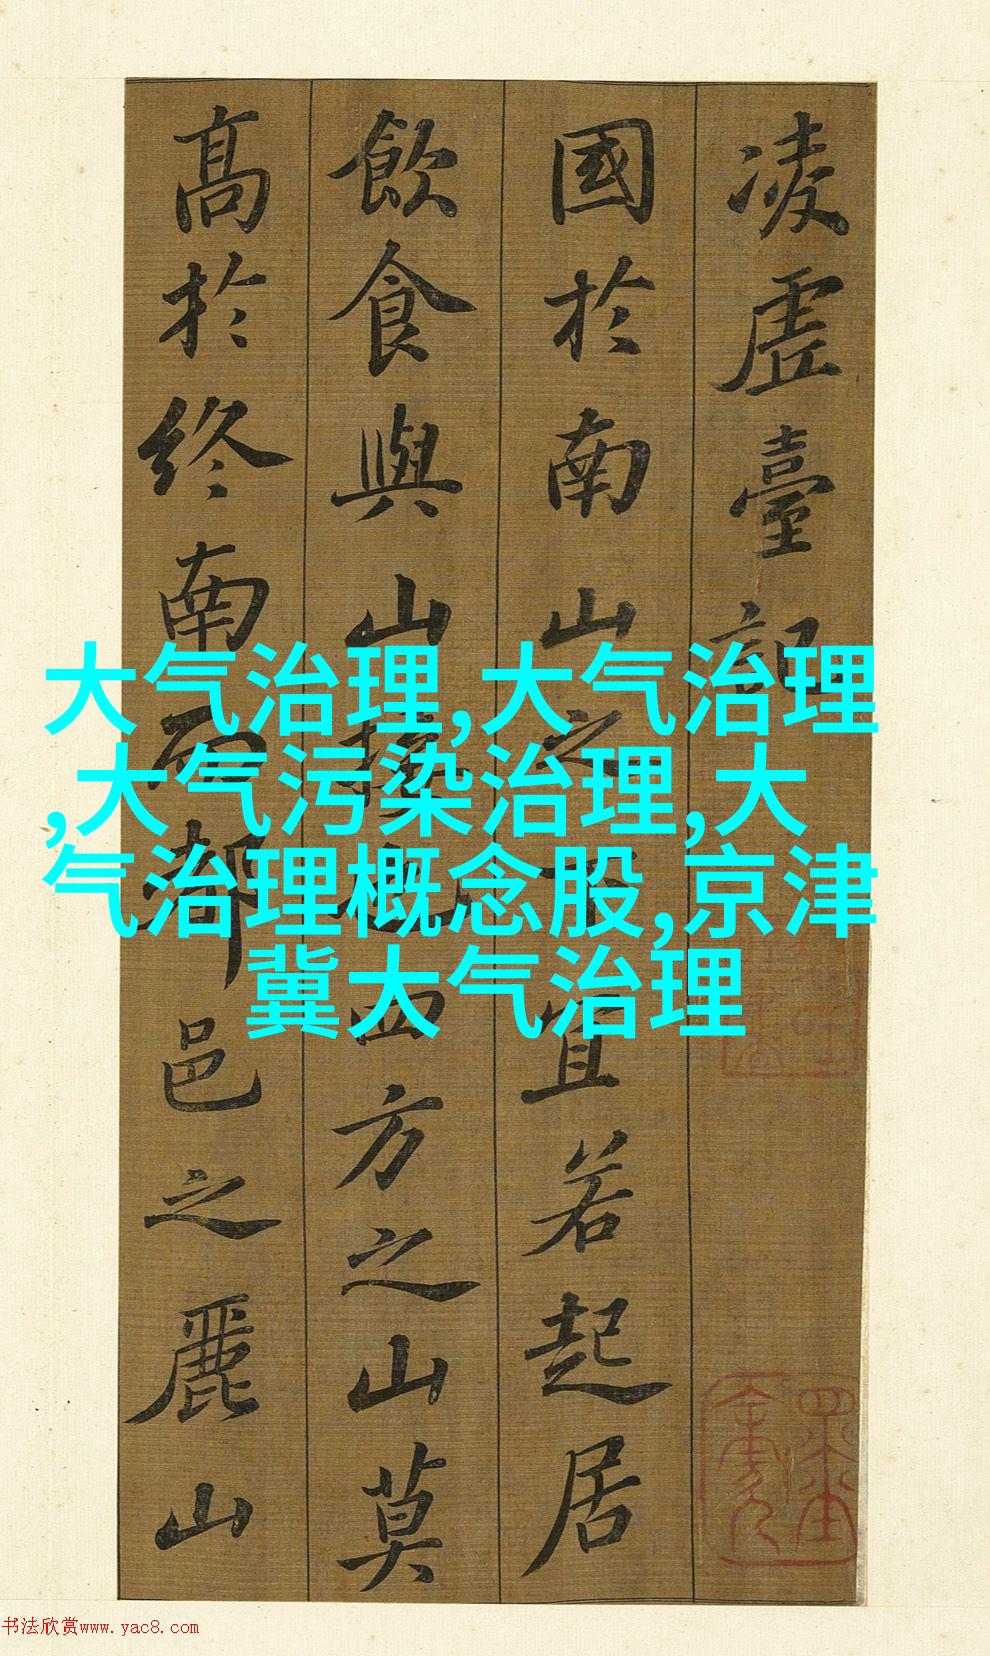 凌虛臺記
國於南山之下宜若起居
飲食與山接也四方之山莫
高於終南而都邑之麗山
大气治理,大气治理
,大气污染治理,大
气治理概念股,京津
冀大气治理
书法欣赏www.yac8.com